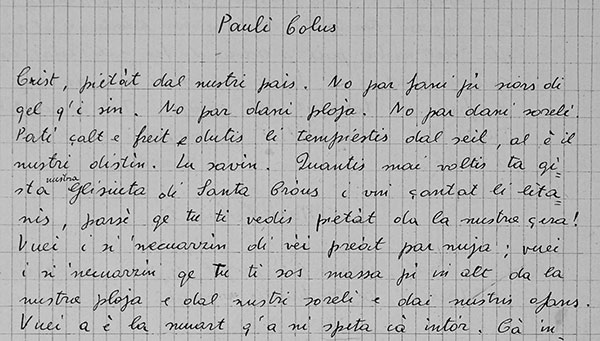 Pauli Colus
Crist, pietàt dal nustri pais. No par fani pì siors di
qel q'i sin. No par dani ploja. No par dani soreli.
Patì çalt e freit e dutis li tempiestis dal seil, al è il
nustri distin. Lu savin. Quantis mai voltis ta qi=
sta nustra Glisiuta di Santa Crous i vin çantat li lita=
nis, parsè qe tu ti vedis pietàt da la nustra çera!
Vuei i si 'necuarzin di vèi preàt par nuja; vuei
i si 'necuarzin qe tu ti sos massa pì in alt da la
nustra ploja e dal nustri soreli e dai nustris afans.
Vuei a è la muart q'a ni speta cà intòr. Cà in=